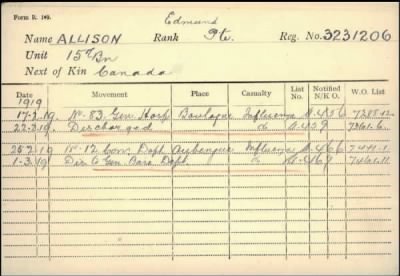 Form B. 149.
Edmund
Name ALLISON Rank Pte. Reg. No. 3231206
Unit 15th Bn
Next of Kin Canada
Date Movement Place Casualty List No. Notified N/K.O. W.O. List
1919
17-2-19 No. 83. Gen. Hosp Boulogne Influenza A.456
22-2-19 Discharged do
25-2-19 No. 12 Con. Dept Aubengue Influenza A.466
1-3-19 Dis to Gen. Base Dept. do A.469